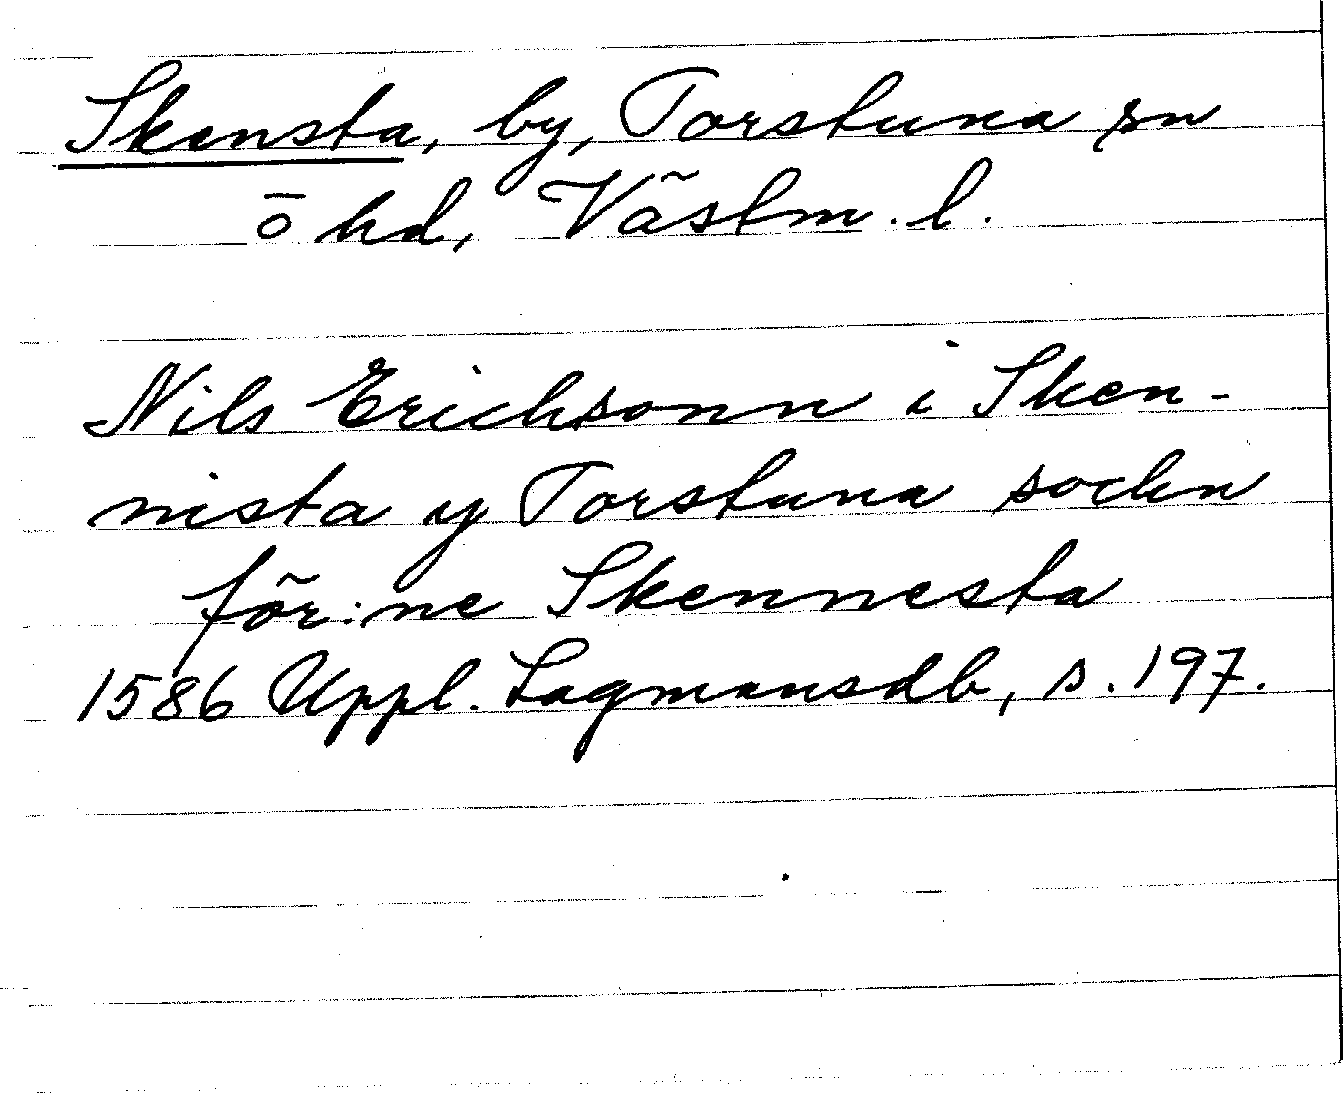 Skensta, by, Torstuna sn
ō hd, Västm. l.
Nils Erichsonn i Sken-
nista y Torstuna sockn
för:ne Skennesta
1586 Uppl. Lagmansdb, s. 197.